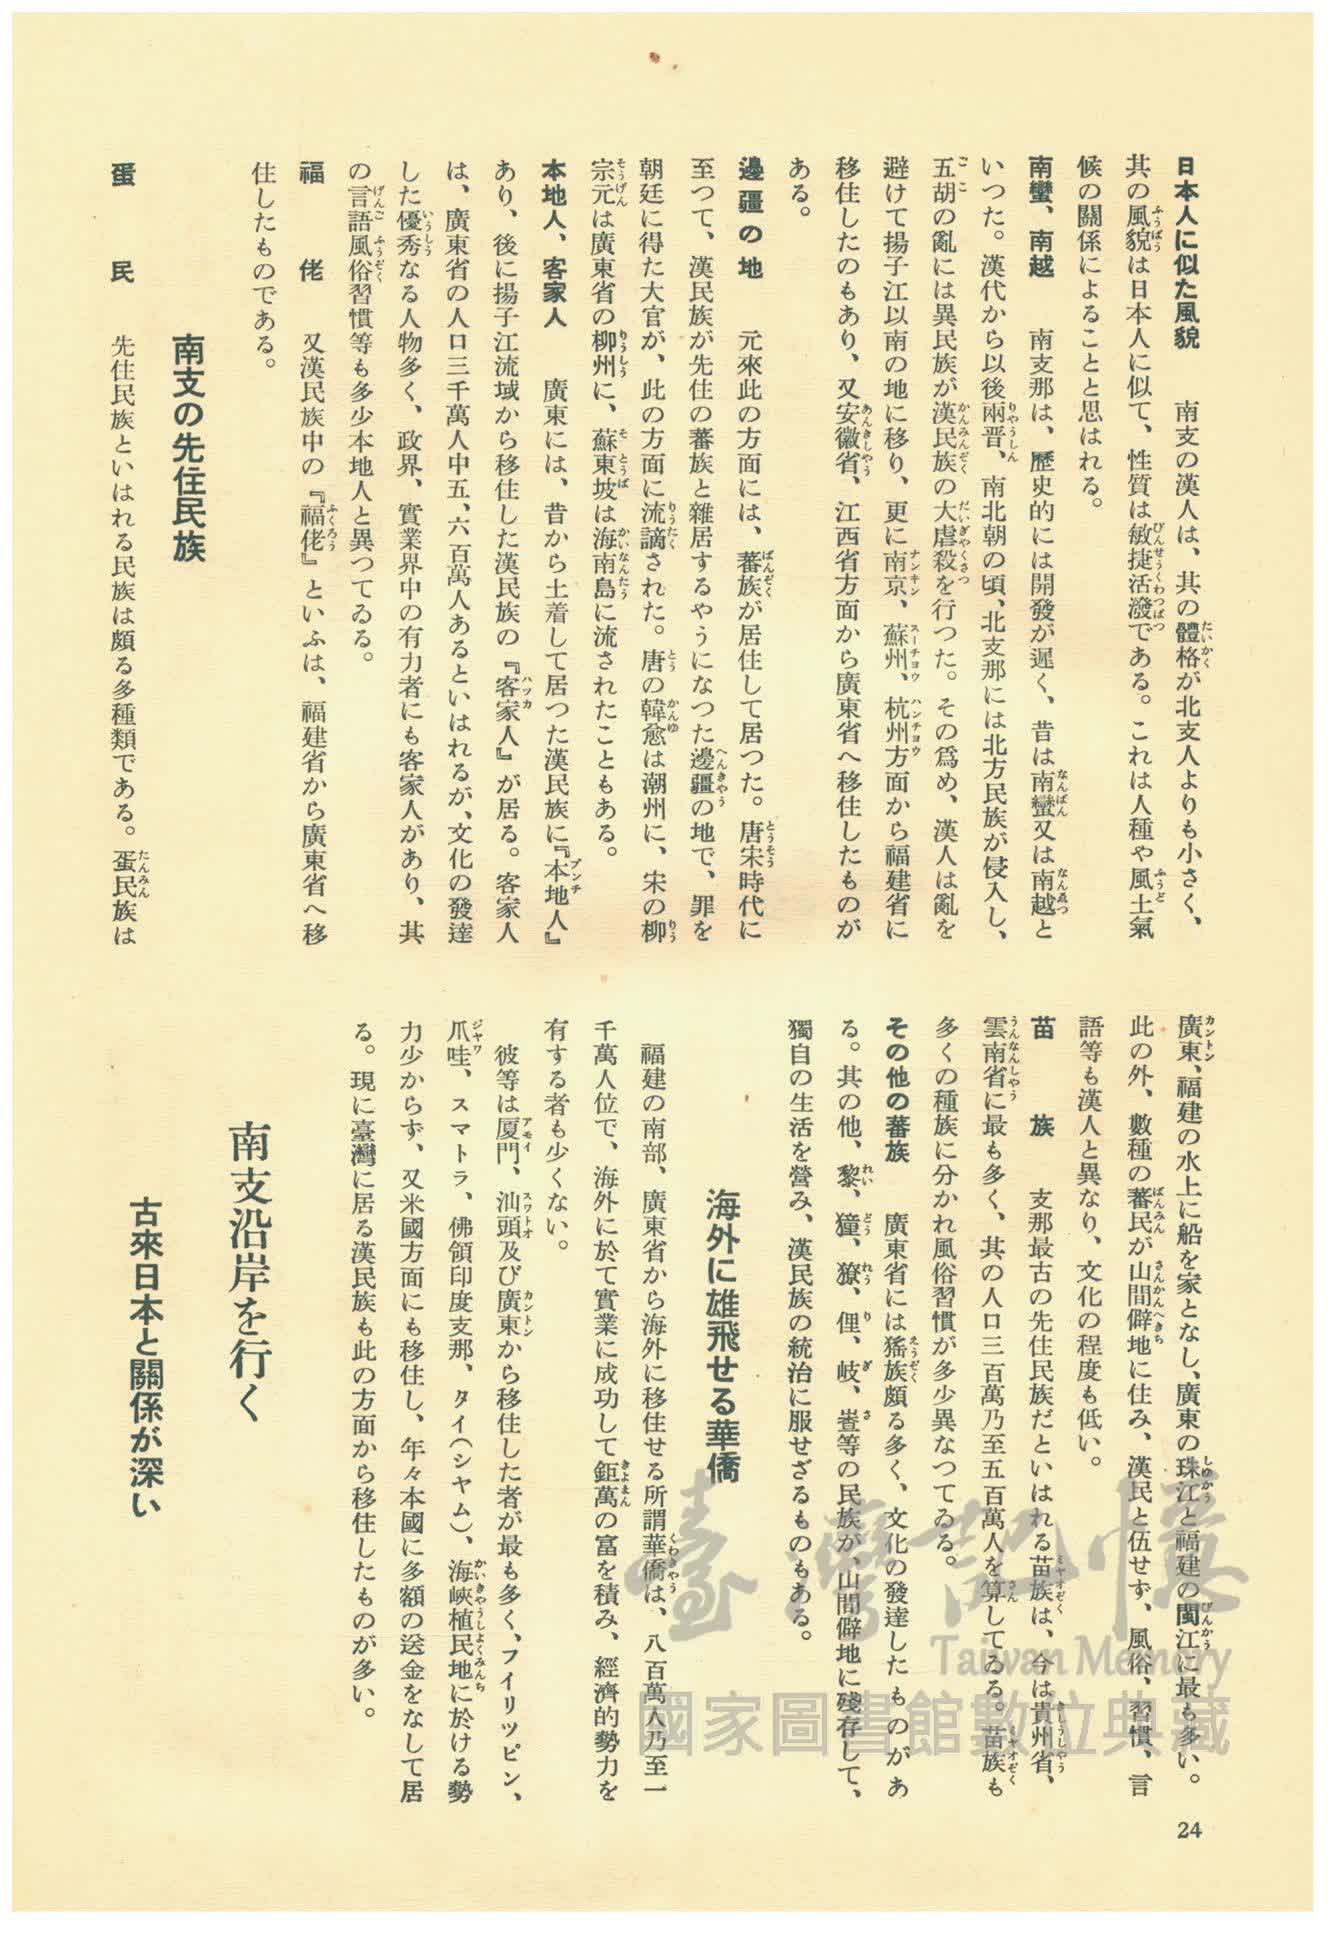 日本人に似た風貌　南支の漢人は、其の體格が北支人よりも小さく、
其の風貌は日本人に似て、性質は敏捷活潑である。これは人種や風土氣
候の關係によることと思はれる。
南蠻、南越　南支那は、歷史的には開發が遲く、昔は南蠻又は南越と
いつた。漢代から以後兩晋、南北朝の頃、北支那には北方民族が侵入し、
五胡の亂には異民族が漢民族の大虐殺を行つた。その爲め、漢人は亂を
避けて揚子江以南の地に移り、更に南京、蘇州、杭州方面から福建省に
移住したのもあり、又安徽省、江西省方面から廣東省へ移住したものが
ある。
邊疆の地　元來此の方面には、蕃族が居住して居つた。唐宋時代に
至つて、漢民族が先住の蕃族と雜居するやうになつた邊疆の地で、罪を
朝廷に得た大官が、此の方面に流謫された。唐の韓愈は潮州に、宋の柳
宗元は廣東省の柳州に、蘇東坡は海南島に流されたこともある。
本地人、客家人　廣東には、昔から土着して居つた漢民族に『本地人』
あり、後に揚子江流域から移住した漢民族の『客家人』が居る。客家人
は、廣東省の人口三千萬人中五、六百萬人あるといはれるが、文化の發達
した優秀なる人物多く、政界、實業界中の有力者にも客家人があり、其
の言語風俗習慣等も多少本地人と異つてゐる。
福佬　又漢民族中の『福佬』といふは、福建省から廣東省へ移
住したものである。
南支の先住民族
蛋民　先住民族といはれる民族は頗る多種類である。蛋民族は
廣東、福建の水上に船を家となし、廣東の珠江と福建の閩江に最も多い。
此の外、數種の蕃民が山間僻地に住み、漢民と伍せず、風俗、習慣、言
語等も漢人と異なり、文化の程度も低い。
苗族　支那最古の先住民族だといはれる苗族は、今は貴州省、
雲南省に最も多く、其の人口三百萬乃至五百萬人を算してゐる。苗族も
多くの種族に分かれ風俗習慣が多少異なつてゐる。
その他の蕃族　廣東省には猺族頗る多く、文化の發達したものがあ
る。其の他、黎、獞、獠、俚、岐、等の民族が、山間僻地に殘存して、
獨自の生活を營み、漢民族の統治に服せざるものもある。
海外に雄飛せる華僑
福建の南部、廣東省から海外に移住せる所謂華僑は、八百萬人乃至一
千萬人位で、海外に於て實業に成功して鉅萬の富を積み、經濟的勢力を
有する者も少くない。
彼等は厦門、汕頭及び廣東から移住した者が最も多く、フイリツピン、
爪哇、スマトラ、佛領印度支那、タイ（シヤム）、海峽植民地に於ける勢
力少からず、又米國方面にも移住し、年々本國に多額の送金をなして居
る。現に臺灣に居る漢民族も此の方面から移住したものが多い。
南支沿岸を行く
古來日本と關係が深い
24
臺灣記憶
Taiwan Memory
國家圖書館數位典藏